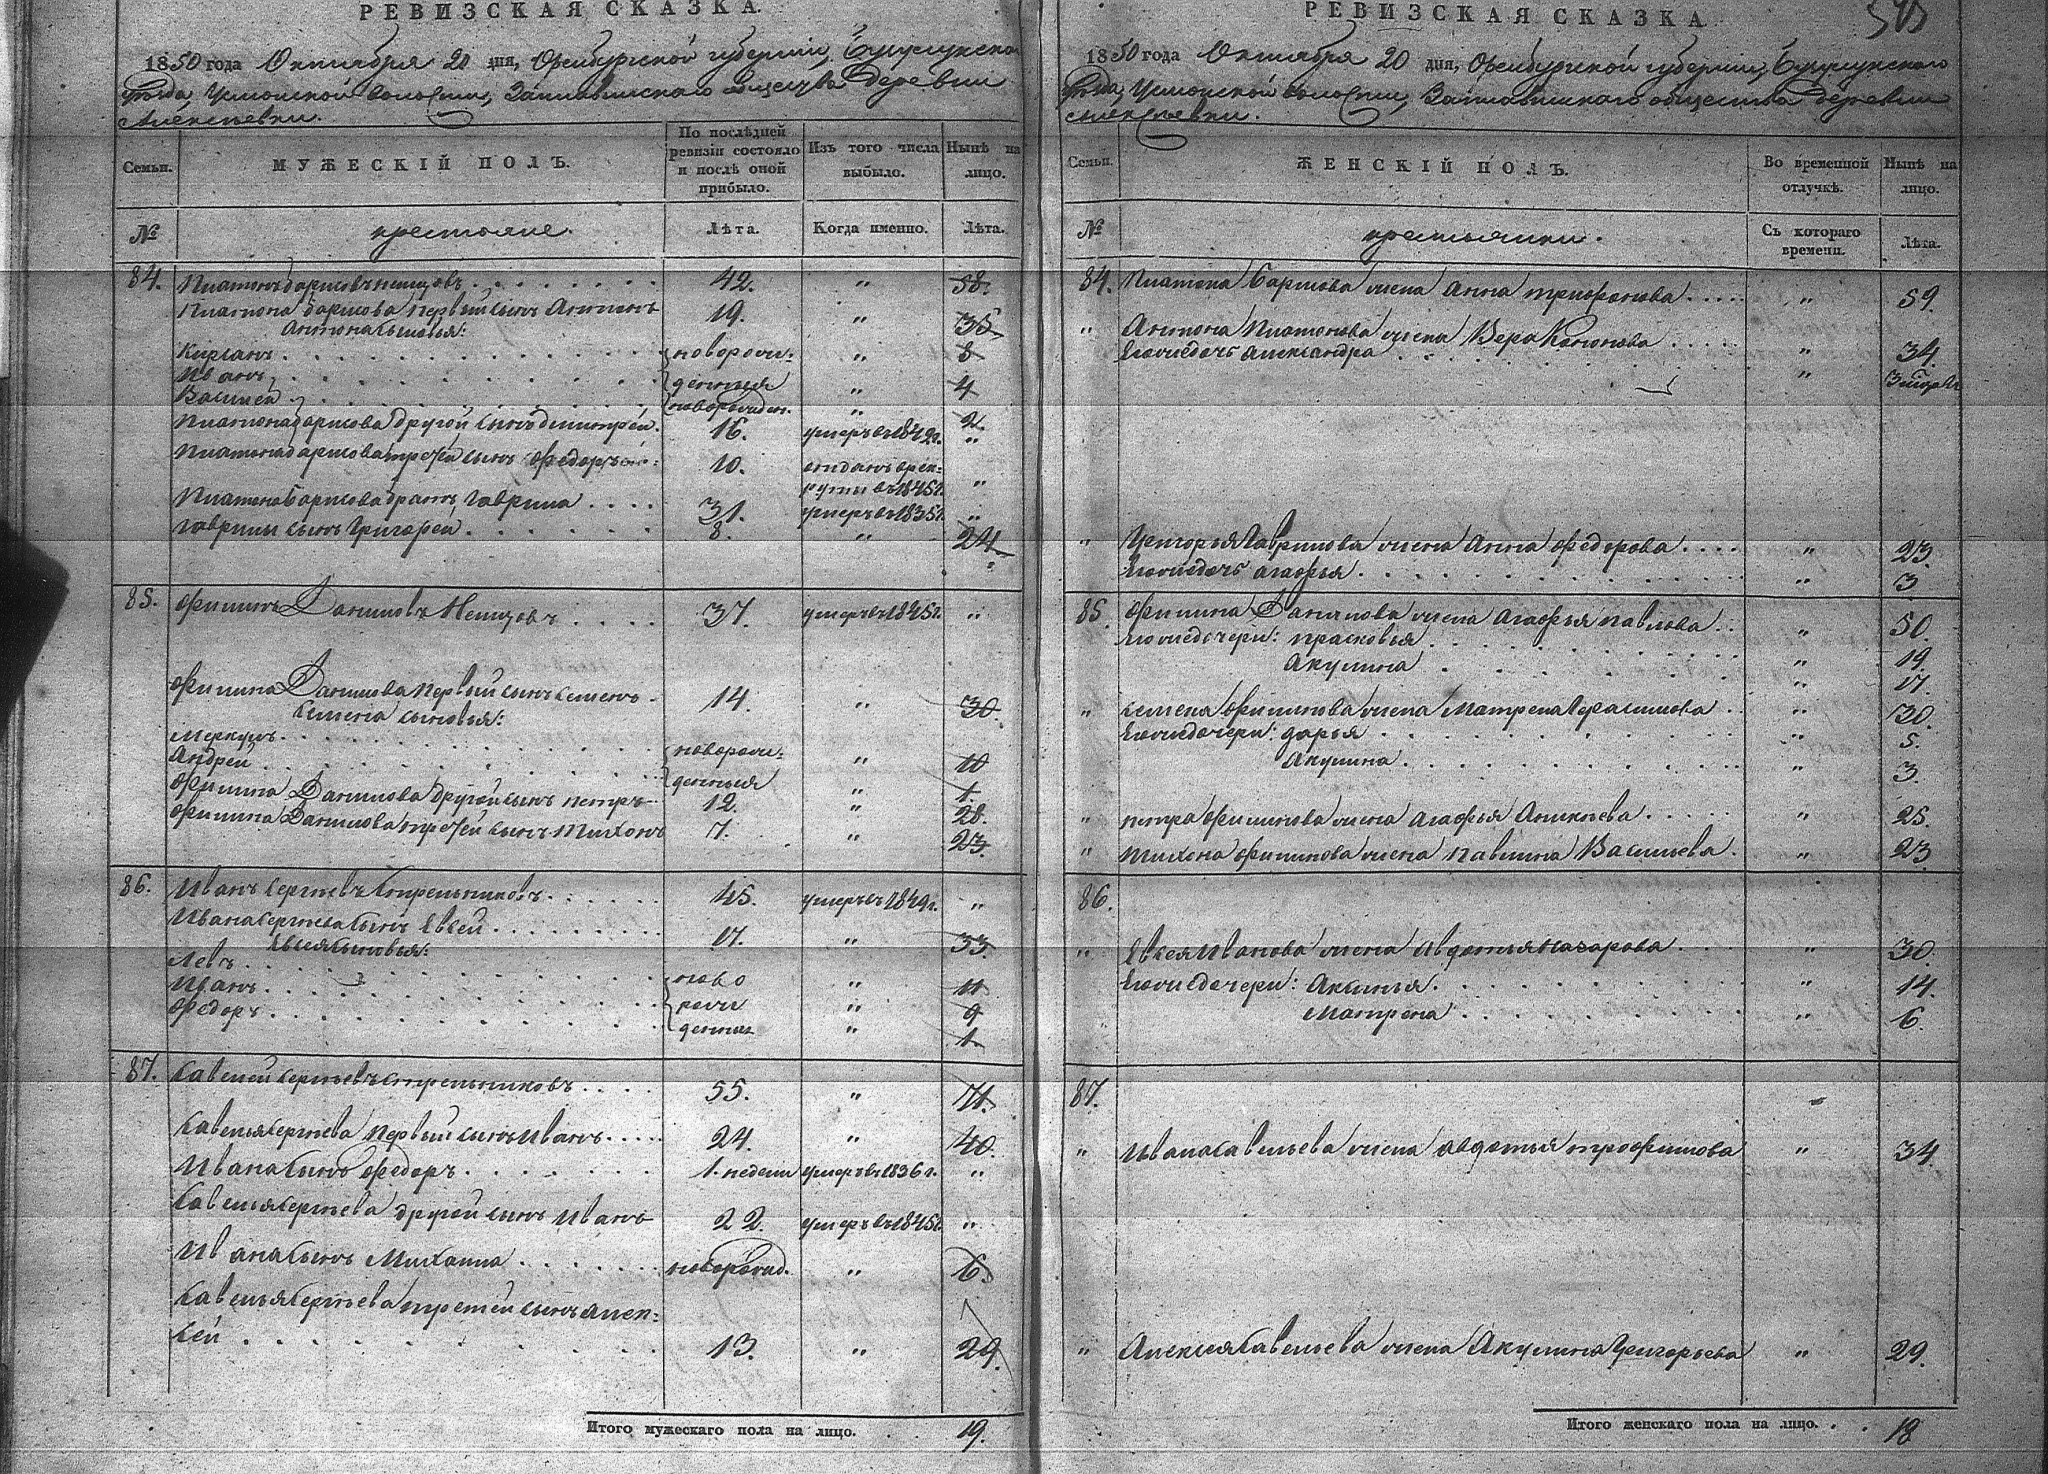 РЕВИЗСКАЯ СКАЗКА.
1850 года Октября 20 дня, Оренбургской губернии, Бузулукского
уезда, Усманской волости, Заплавинскаго общества деревни
Алексѣевки.
Семьи.
МУЖЕСКІЙ ПОЛЪ.
По послѣдней ревизіи состояло и послѣ оной прибыло.
Изъ того числа выбыло.
Нынѣ на лицо.
№
крестьяне.
Лѣта.
Когда именно.
Лѣта.
84. Платонъ Барисовъ Немцовъ 42. " 58.
Платона Барисова первый сынъ Антонъ 19. " 35.
Антона сыновья:
Кирсанъ новорож- " 8
Иванъ денныя " 4
Василей новорожден. " 2.
Платона Барисова другой сынъ Дмитрей. 16. умеръ въ 1842г. "
Платона Барисова третей сынъ Федоръ 10. отданъ врек-
руты въ 1845г. "
Платона Барисова братъ Гаврила 31. умеръ въ 1835г. "
Гаврилы сынъ Григорей 8. " 24.
85. Филипъ Даниловъ Немцовъ 37. умеръ въ 1845г. "
Филипа Данилова первый сынъ Семенъ 14. " 30.
Семена сыновья:
Меркулъ новорож- " 10
Андрей денныя " 1.
Филипа Данилова другой сынъ Петръ 12. " 28.
Филипа Данилова третей сынъ Тихонъ 7. " 23.
86. Иванъ Сергѣевъ Стрельниковъ 45. умеръ въ 1849г. "
Ивана Сергѣева сынъ Евсей 17. " 33.
Евсея сыновья:
Левъ ново " 11
Иванъ рож " 9
Федоръ денныя " 1.
87. Савелей Сергѣевъ Стрельниковъ 55. " 71.
Савелья Сергѣева первый сынъ Иванъ 24. " 40.
Ивана сынъ Федоръ 1. недели умеръ въ 1836г. "
Савелья Сергѣева другой сынъ Иванъ 22. умеръ въ 1845г. "
Ивана сынъ Михаила новорожд. " 6.
Савелья Сергѣева третей сынъ Алек-
сей 13. " 29.
Итого мужескаго пола на лицо. 19.
РЕВИЗСКАЯ СКАЗКА
1850 года Октября 20 дня, Оренбургской губерніи, Бузулукского
уезда, Усманской волости, Заплавинскаго общества деревни
Алексѣевки.
Семьи.
ЖЕНСКІЙ ПОЛЪ.
Во временной отлучкѣ.
Нынѣ на лицо.
№
крестьянки.
Съ котораго времени.
Лѣта.
84. Платона Барисова жена Анна Трифонова " 59.
" Антона Платонова жена Вера Кононова " 34.
Ево же дочь Александра " 3
" Григорья Гаврилова жена Анна Федорова " 23.
Ево же дочь Агафья " 3
85. Филипа Данилова жена Агафья Павлова " 50.
Ево же дочери: Прасковья " 19.
Акулина " 17.
" Семена Филипова жена Матрена Герасимова " 30.
Ево же дочери: Дарья " 5.
Акулина " 3
" Петра Филипова жена Агафья Аникиева " 25.
" Тихона Филипова жена Павлина Васильева. " 23
86.
" Евсея Иванова жена Авдотья Назарова " 30.
Ево же дочери: Аксинья " 14.
Матрена " 6.
87.
" Ивана Савельева жена Авдотья Трофимова " 34.
" Алексея Савельева жена Акулина Григорьева " 29.
Итого женскаго пола на лицо. 18